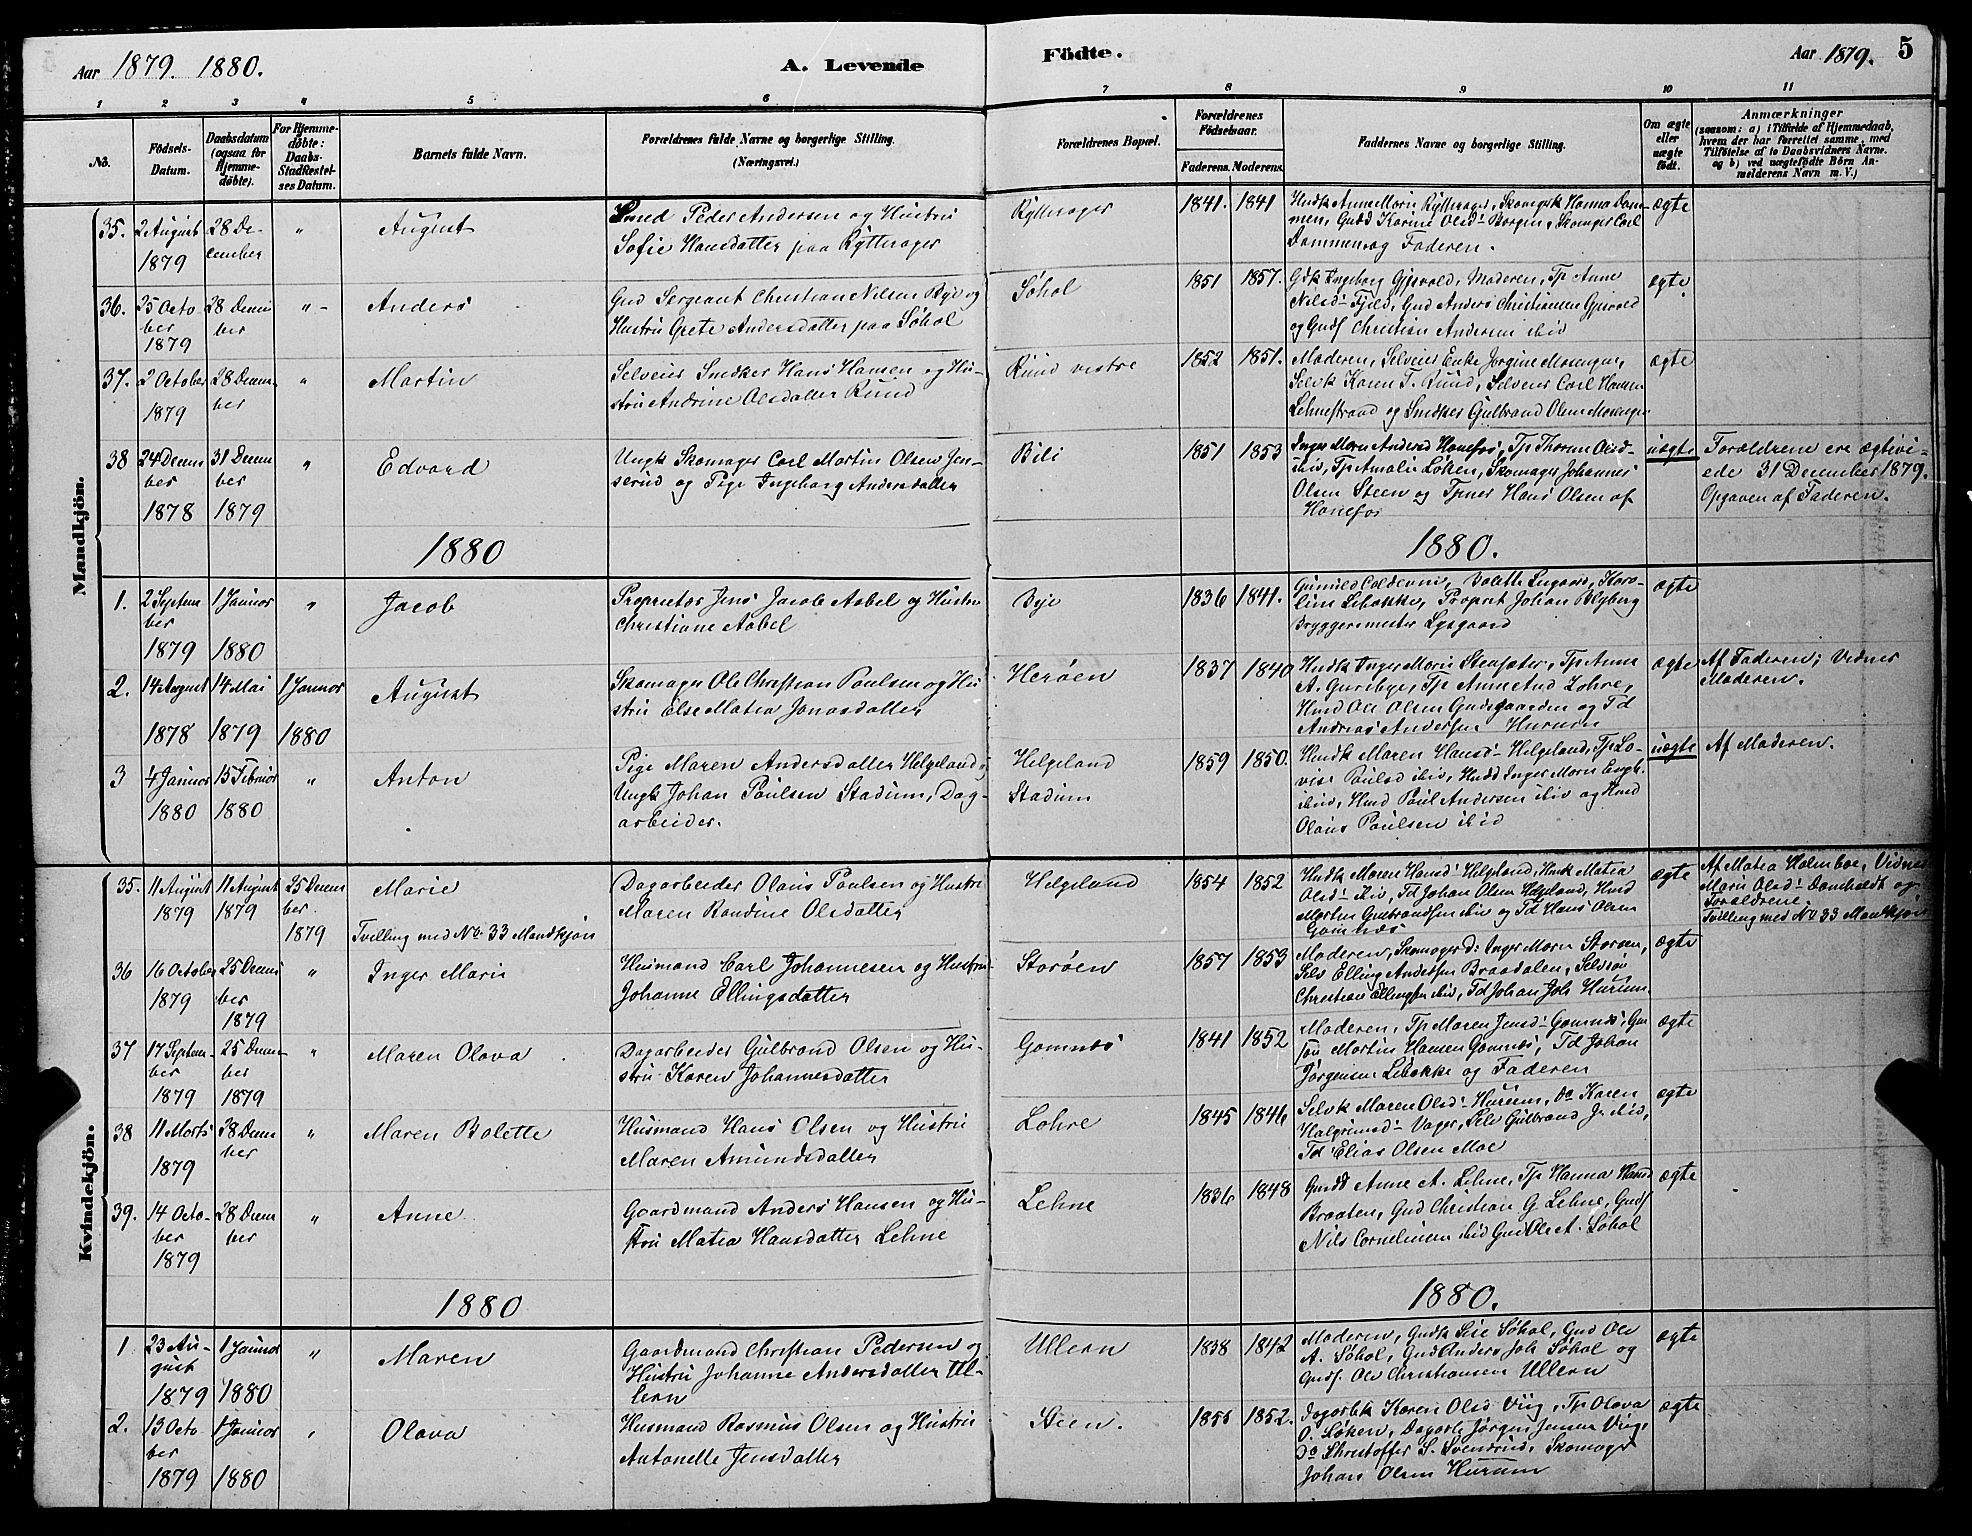 Aar 1879. 1880.
A. Levende
Födte.
Aar 1879. 5
1 2 3 4 5 6 7 8 9 10 11
No.
Födsels-Datum.
Daabsdatum (ogsaa for Hjemme-döbte).
For Hjemme-döbte: Daabs-Stadfæstel-ses Datum.
Barnets fulde Navn.
Forældrenes fulde Navne og borgerlige Stilling.
(Næringsvei.)
Forældrenes Bopæl.
Forældrenes Födselsaar.
Faderens. Moderens.
Faddernes Navne og borgerlige Stilling.
Om ægte eller uægte födt.
Anmærkninger
(saasom: a) i Tilfælde af Hjemmedaab,
hvem der har forrettet samme, med
Tilföielse af to Daabsvidners Navne,
og b) ved uægtefödte Börn An-
melderens Navn m. V.)
Mandkjön.
35. 2 August 1879 28 De-cember " August
Peder Andersen og Hustru
Sofie Hansdatter paa Rytterager
Rytterager 1841. 1841
Dammen og Faderen.
ægte
36. 25 Octo-ber 1879 28 Decem-ber " Anders
Gmd Sergeant Christian Nilsen Bye og
Hustru Grete Andersdatter paa Søhol
Søhol 1851 1857.
Gdk Ingeborg Gjesvold, Moderen, Tp Anne
Nilsd Fjeld, Gmd Anders Christiansen Gjesvold
og Gmdf Christian Andersen ibid
ægte
37. 2 October 1879 28 Decem-ber " Martin
Selveier Snedker Hans Hansen og Hu-
stru Andrine Olsdatter Rund
Rund vestre 1852 1851.
Moderen, Selveier Enke Jorgine
Selvk Karen T. Rund, Selveier Carl Hansen
Lehnestrand og Snedker Gulbrand Olsen
ægte
38 24 Decem-ber 1878 31 Decem-ber 1879 " Edvard
Ungk Skomager Carl Martin Olsen Jen-
serud og Pige Ingeborg Andersdatter
Bili 1851 1853
Inger Marie Andersd Hønefos, Tp Thorine Olsd
ibid, Tp Amalie Løken, Skomager Johannes
Olsen Steen og Hans Olsen af
Hønefos
uægte
Forældrene ere ægtevi-
ede 31 December 1879.
Opgaven af Faderen.
1880 1880.
1. 2 Septem-ber 1879 1 Januar 1880 " Jacob
Proprietær Jens Jacob Aabel og Hustru
Christiane Aabel
Bye 1836 1841.
Karo-
line Lebakke, Propret Johan Blyberg
Bryggermester Lysgaard
ægte
2. 14 August 1878 14 Mai 1879 1 Januar 1880 August
Skomager Ole Christian Paulsen og Hu-
stru Else Matea Jonasdatter
Herøen 1837 1840
Hmdk Inger Marie Stensæter, Tp Anne
Hmd Ole Olsen Gudsgaarden og Td
Andreas Andersen Hurum
ægte
Af Faderen; Vidner
Moderen.
3 4 Januar 1880 15 Februar 1880 " Anton
Pige Maren Andersdatter Helgeland,
Ungk Johan Paulsen Stadum, Dag-
arbeider.
Helgeland
Stadum
1859 1850.
Hmdk Maren Hansd Helgeland, Tp Lo-
vise Paulsd ibid, Hmdd Inger Marie
ibid, Hmd Paul Andersen ibid og Hmd
Olaus Paulsen ibid
uægte
Af Moderen.
Kvindekjön.
35. 11 August 1879 11 August 1879 25 Decem-ber. 1879 Marie
Tvilling med No 33 Mandkjøn
Dagarbeider Olaus Paulsen og Hustru
Maren Randine Olsdatter
Helgeland 1854 1852
Hmdk Maren Hansd Helgeland, Hmdk Matia
Olsd ibid, Td Johan Olsen Helgeland, Hmd
Martin Gulbrandsen ibid og Td Hans Olsen
Gomnæs
ægte
Af Matea Holmboe, Vidner
Marie Olsd Domholdt og
Forældrene.
Tvilling med No 33 Mandkjøn
36 16 October 1879 25 Decem-ber 1879 " Inger Marie
Husmand Carl Johannesen og Hustru
Johanne Ellingsdatter
Storøen 1857 1853
Moderen, Skomager D: Inger Marie Storøen,
Selv Elling Andersen Braadalen, Selvsøn
Christian Ellingsen ibid, Td Johan Joh Hurum.
ægte
37 17 Septem-ber 1879 25 Decem-ber 1879 " Maren Olava
Dagarbeider Gulbrand Olsen og Hu-
stru Karen Johannesdatter
Gomnæs 1841 1852
Moderen, Tp Maren Jensd Gomnæs, Gm
søn Martin Hansen Gomnæs, Td Johan
Jørgensen Lebakke og Faderen
ægte
38 11 Marts 1879 28 Decem-ber " Maren Bolette
Husmand Hans Olsen og Hustru
Maren Amundsdatter
Lohre 1845 1846
Selvk Maren Olsd Hurum, Do Karen
Halgrimsd Vager, Selv Gulbrand Jr ibid,
Td Elias Olsen Moe
ægte
39. 14 Octo-ber 1879 28 Decem-ber " Anne
Gaardmand Anders Hansen og Hu-
stru Matea Hansdatter Lehne
Lehne 1836 1848
Gmdd Anne A. Lehne, Tp Hanna Hansd
Braaten, Gmd Christian G. Lehne, Gmdf
Nils Corneliusen ibid Gmd Ole A. Søhol
ægte
1880 1880.
1 23 Au-gust 1879 1 Januar 1880 " Maren
Gaardmand Christian Pedersen og
Hustru Johanne Andersdatter Ul-
lern
Ullern 1838 1842
Moderen, Gmdk Lise Søhol, Gmd Ole
A. Søhol, Gmd Anders Joh Søhol og
Gmdf. Ole Christiansen Ullern
ægte
2. 13 Octo-ber 1879 1 Januar 1880 " Olava
Husmand Rasmus Olsen og Hustru
Antonette Jensdatter
Steen. 1855 1852.
Dagarbk Karen Olsd Viig, Tp Olava
O. Løken, Dagarb Jørgen Jensen Viig,
Do Christoffer S. Svendsrud, Skomager
Johan Olsen Hurum
ægte